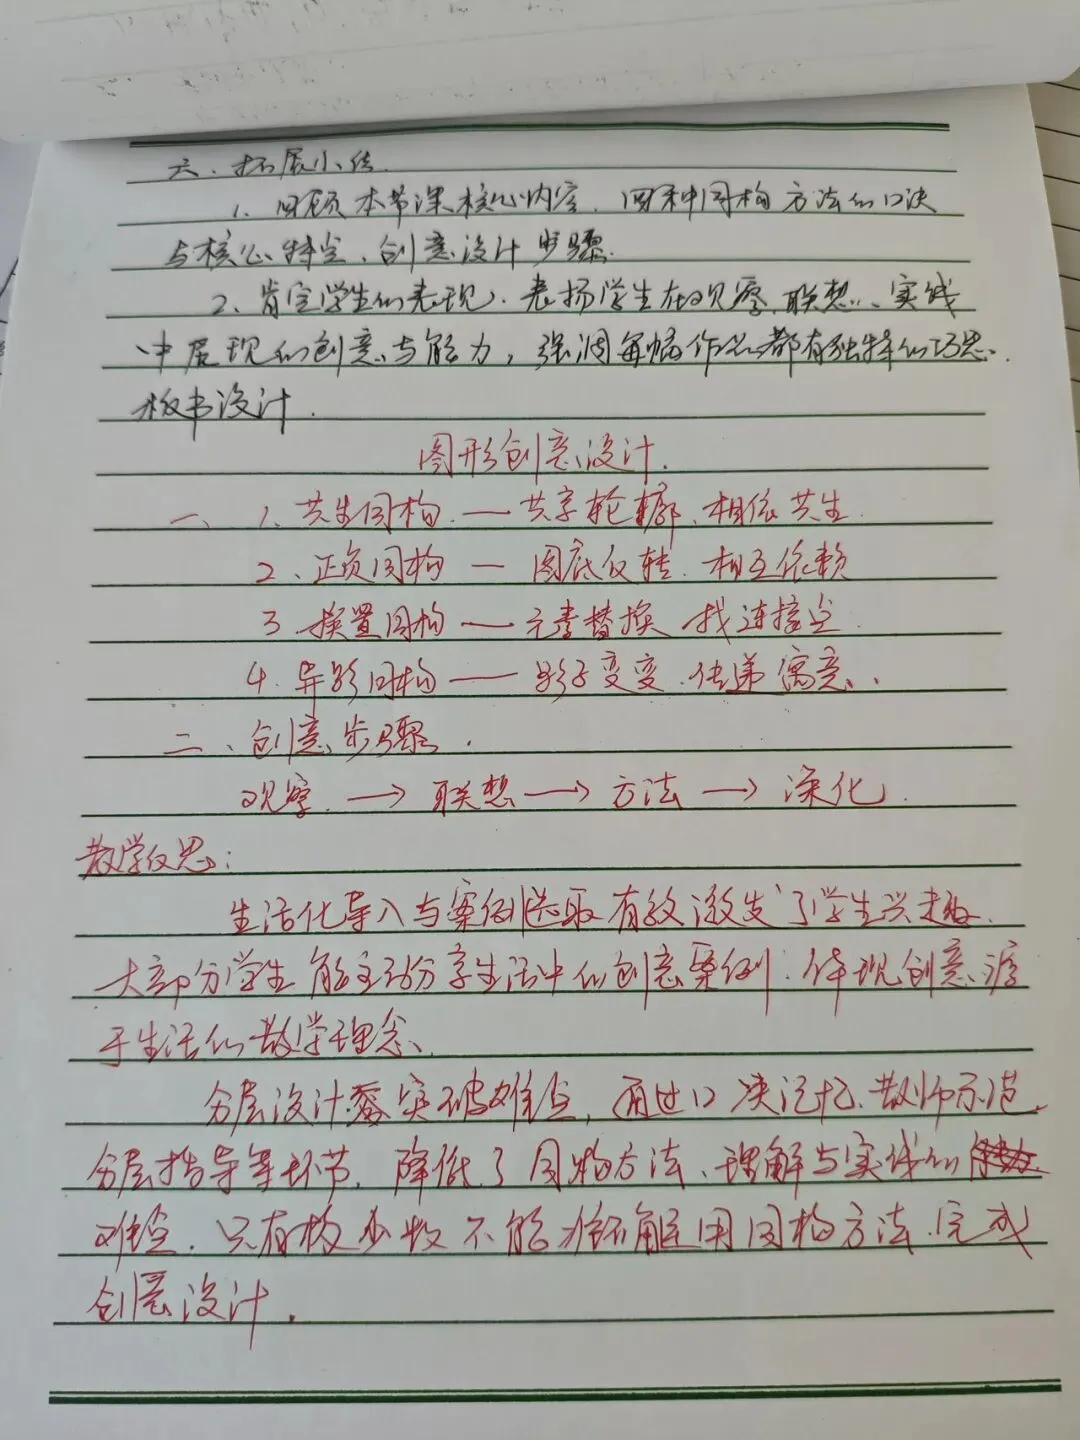 六、拓展小结.
1. 回顾本节课核心内容，四种同构方法的口诀
与核心特点、创意设计步骤.
2、肯定学生的表现，表扬学生在观察、联想、实践
中展现的创意与能力，强调每幅作品都有独特的巧思.
板书设计.
图形创意设计.
一、1、共生同构 — 共享轮廓、相依共生.
2、正负同构 — 图底反转、相互依赖
3 换置同构 — 元素替换 找连接点.
4. 异影同构 — 影子变变、传递寓意、
二、创意步骤.
观察 → 联想 → 方法 → 深化.
教学反思：
生活化导入与案例选取有效激发了学生兴趣.
大部分学生能主动分享生活中的创意案例，体现创意源
于生活的教学理念、
分层设计突破难点，通过口决记忆、教师示范、
分层指导等环节，降低了同构方法、理解与实践的
难点，只有极少数不能 用同构方法、完成
创意设计.